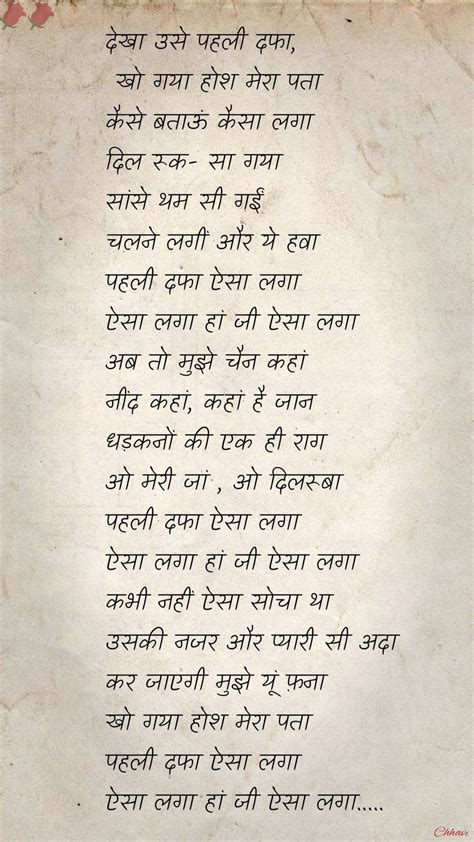 देखा उसे पहली दफा,
खो गया होश मेरा पता
कैसे बताऊं कैसा लगा
दिल रूक- सा गया
सांसे थम सी गईं
चलने लगीं और ये हवा
पहली दफा ऐसा लगा
ऐसा लगा हां जी ऐसा लगा
अब तो मुझे चैन कहां
नींद कहां, कहां है जान
धड़कनों की एक ही राग
ओ मेरी जां , ओ दिलरूबा
पहली दफा ऐसा लगा
ऐसा लगा हां जी ऐसा लगा
कभी नहीं ऐसा सोचा था
उसकी नजर और प्यारी सी अदा
कर जाएगी मुझे यूं फ़ना
खो गया होश मेरा पता
पहली दफा ऐसा लगा
ऐसा लगा हां जी ऐसा लगा.....
Chhavi